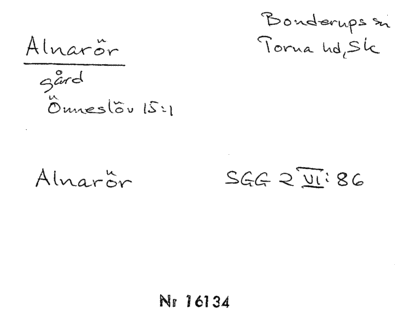 Alnarör
Bonderups sn
Torna hd, Sk
gård
Önneslöv 15:1
Alnarör
SGG 2 VI: 86
Nr 16134